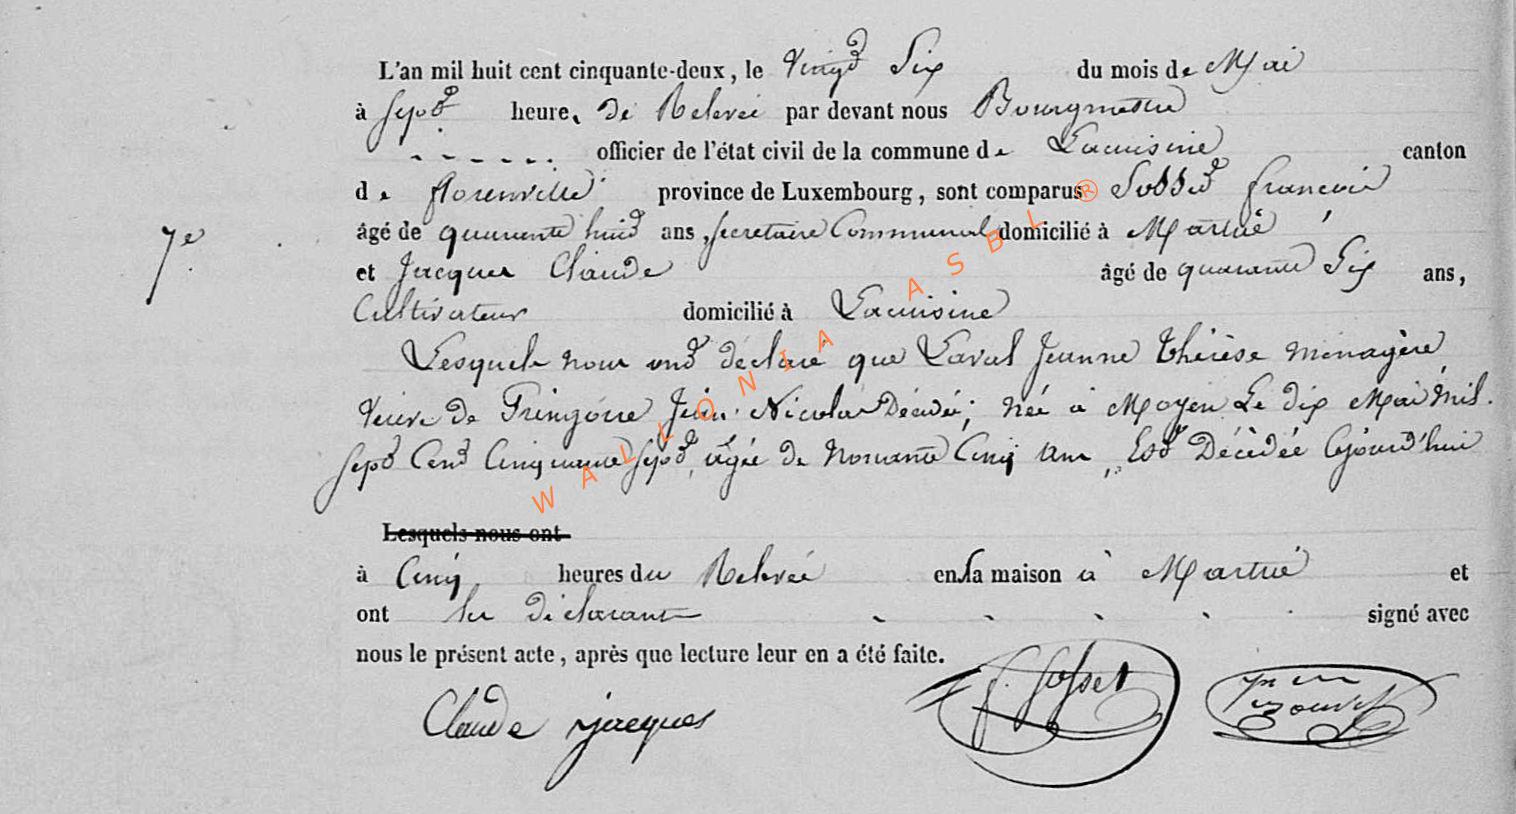 L'an mil huit cent cinquante-deux, le Vingt Six du mois de Mai
à Sept heures de Relevée par devant nous Bourgmestre
officier de l'état civil de la commune de Lacuisine canton
de florenville province de Luxembourg, sont comparus Sosset francois
7e
âgé de quarante huit ans, secretaire Communal domicilié à Martué
et Jacques Claude âgé de quarante Six ans,
Cultivateur domicilié à Lacuisine
Lesquels nous ont déclaré que Laval Jeanne Thérèse ménagère
veuve de Fringorre Jean Nicolas Décédé, née à Moyen Le dix Mai Mil
Sept Cent Cinquante Sept, agée de Nonante Cinq ans, Est Décèdée Cejourd'hui
Lesquels nous ont
à Cinq heures du Relevée en sa maison à Martué et
ont les déclarants signé avec
nous le présent acte, après que lecture leur en a été faite.
Claude jacques F. Sosset
WALLONIA ASBL ®